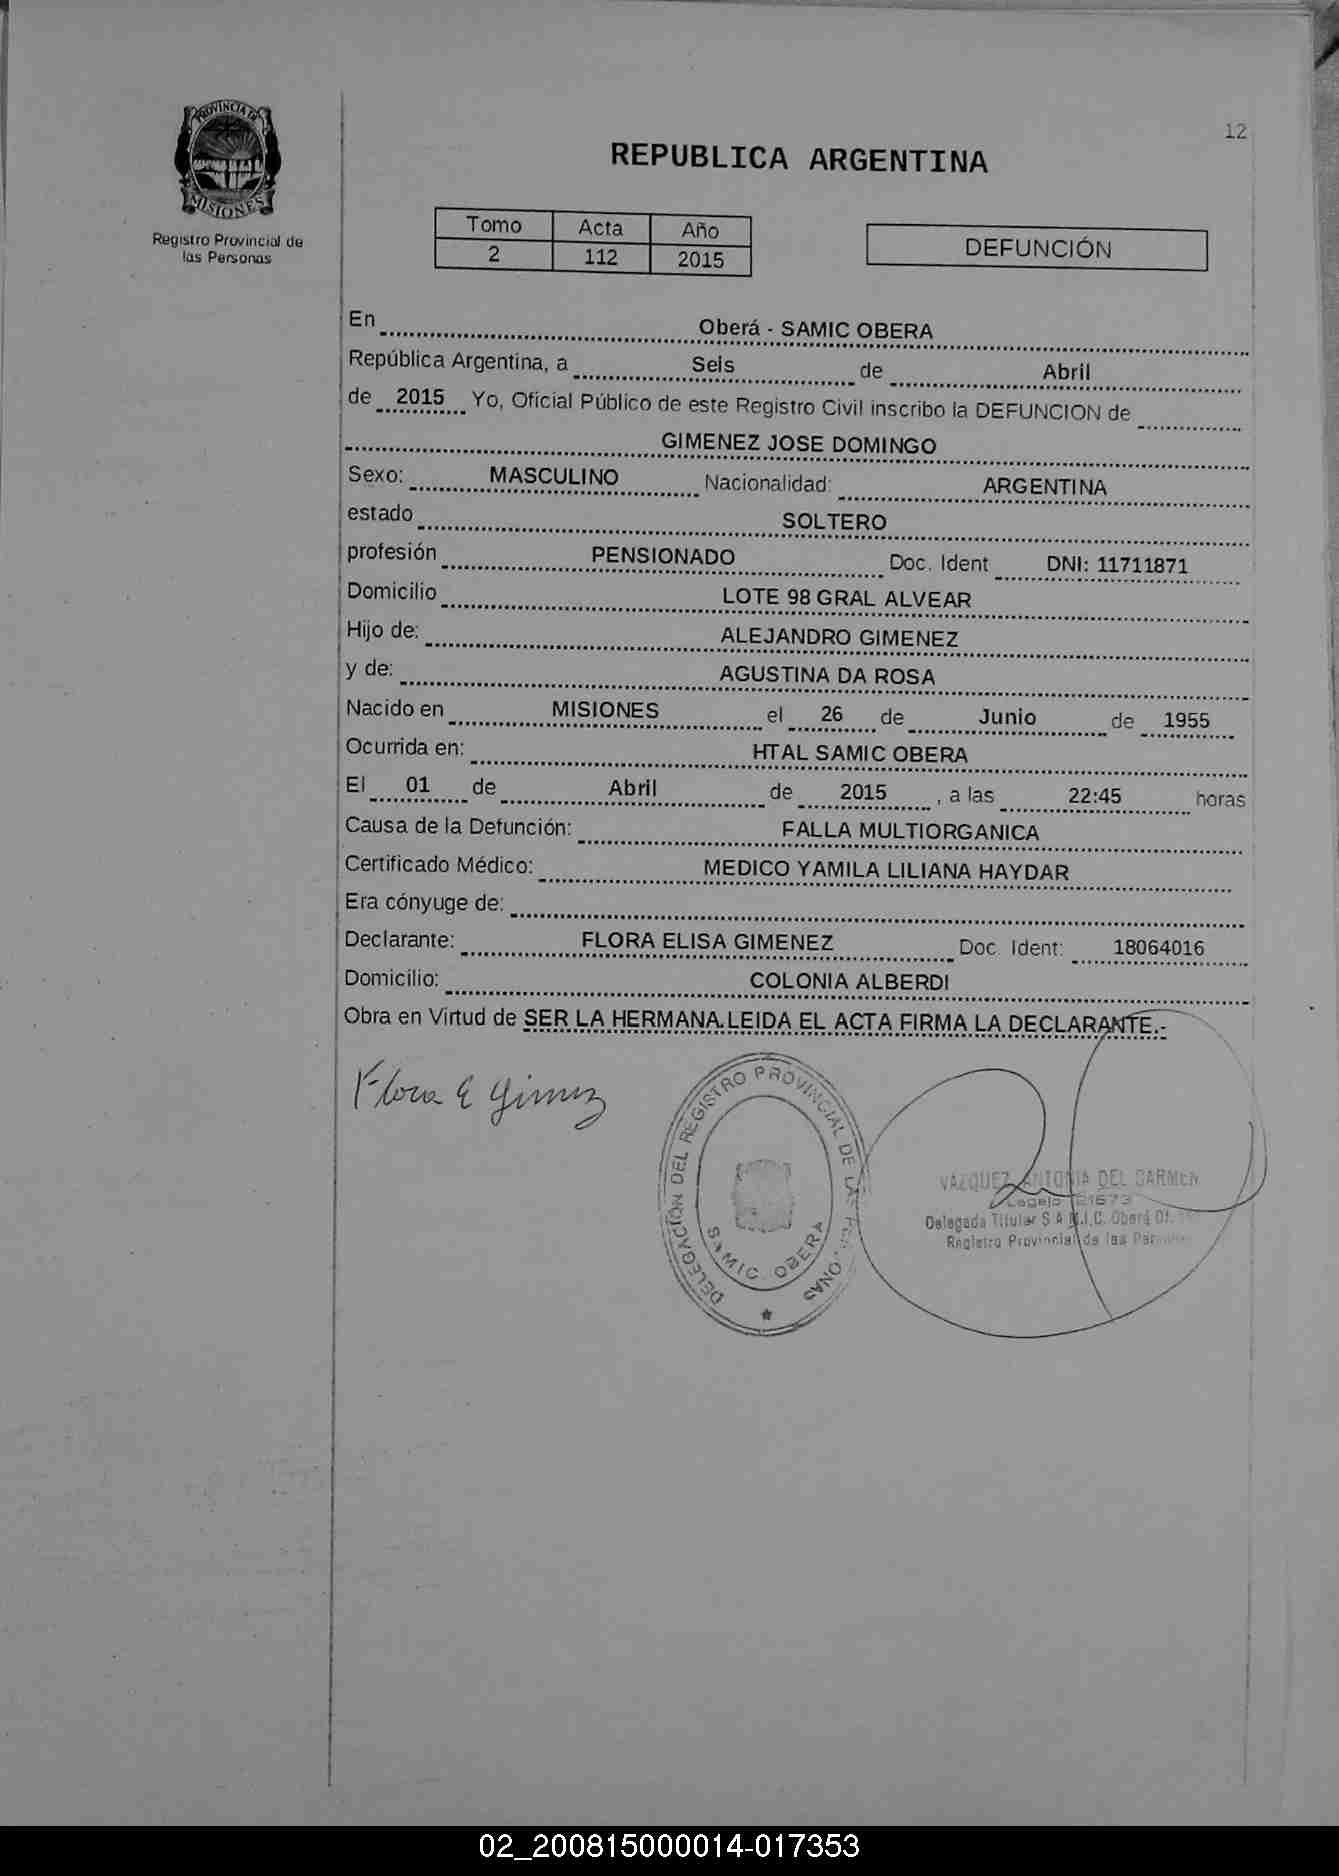 12
PROVINCIA DE
MISIONES
Registro Provincial de
las Personas
REPUBLICA ARGENTINA
Tomo Acta Año
2 112 2015
DEFUNCIÓN
En Oberá - SAMIC OBERA
República Argentina, a Seis de Abril
de 2015 Yo, Oficial Público de este Registro Civil inscribo la DEFUNCION de
GIMENEZ JOSE DOMINGO
Sexo: MASCULINO Nacionalidad: ARGENTINA
estado SOLTERO
profesión PENSIONADO Doc. Ident DNI: 11711871
Domicilio LOTE 98 GRAL ALVEAR
Hijo de: ALEJANDRO GIMENEZ
y de: AGUSTINA DA ROSA
Nacido en MISIONES el 26 de Junio de 1955
Ocurrida en: HTAL SAMIC OBERA
El 01 de Abril de 2015 , a las 22:45 horas
Causa de la Defunción: FALLA MULTIORGANICA
Certificado Médico: MEDICO YAMILA LILIANA HAYDAR
Era cónyuge de:
Declarante: FLORA ELISA GIMENEZ Doc. Ident: 18064016
Domicilio: COLONIA ALBERDI
Obra en Virtud de SER LA HERMANA.LEIDA EL ACTA FIRMA LA DECLARANTE.-
Flora E Gimenez
DELEGACIÓN DEL REGISTRO PROVINCIAL DE LAS PERSONAS
SAMIC. OBERA
VAZQUEZ ANTONIA DEL CARMEN
Legajo 21673
Delegada Titular S.A.M.I.C. Oberá Of.
Registro Provincial de las Personas
02_200815000014-017353